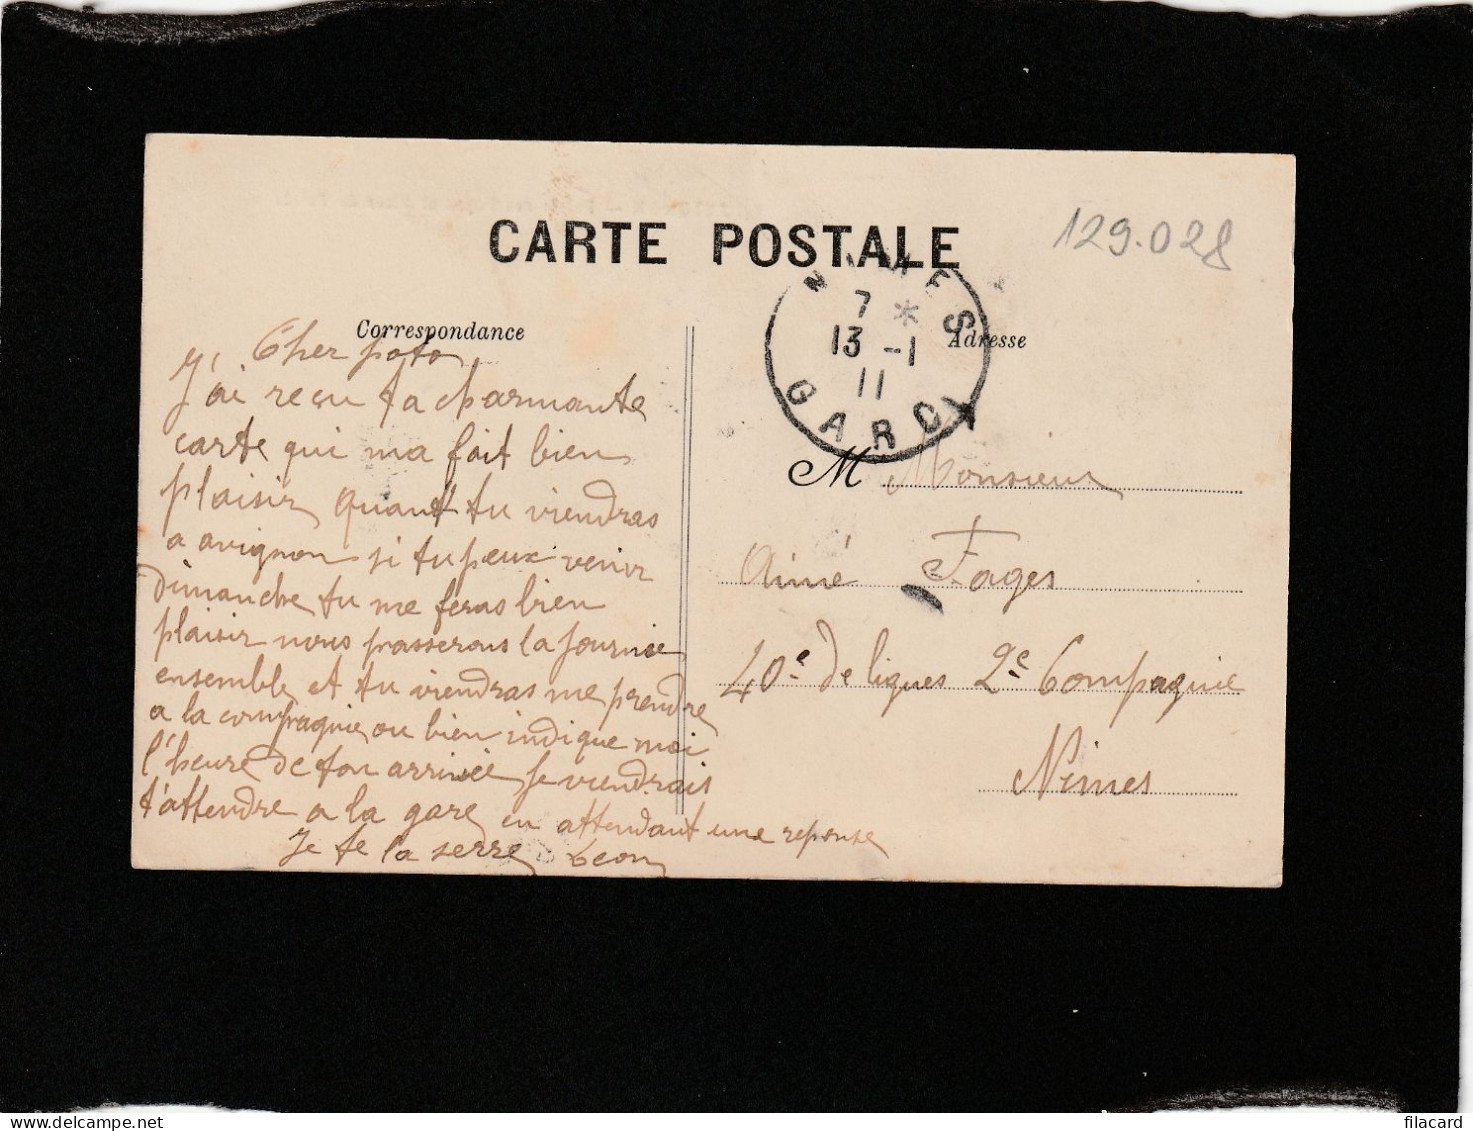 CARTE POSTALE
129.028
Correspondance
Adresse
NIMES
7 *
13 -1
11
GARD
Cher poto
J'ai reçu ta charmante
carte qui ma fait bien
plaisir quant tu viendras
a avignon si tu peux venir
dimanche tu me feras bien
plaisir nous passerons la journée
ensemble et tu viendras me prendre
a la compagnie ou bien indique moi
l'heure de ton arrivée je viendrais
t'attendre a la gare en attendant une reponse
Je te la serre Leon
M Monsieur
Aimé Fages
40e de lignes 2e Compagnie
Nimes
filacard